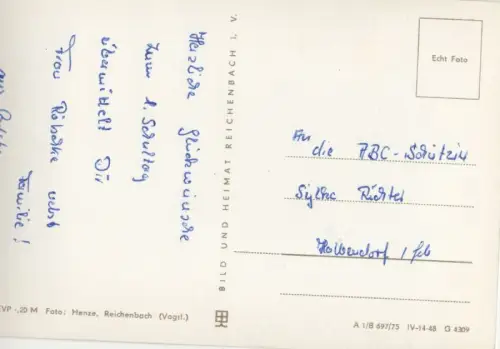 Herzliche Glückwünsche
zum 1. Schultag
übermittelt Dir
Frau Röbetke nebst
Familie!
BILD UND HEIMAT REICHENBACH I. V.
Echt Foto
An
die ABC-Schützin
Sylke Richter
EVP -,20 M Foto: Henze, Reichenbach (Vogtl.)
A 1/B 697/75 IV-14-48 G 4309